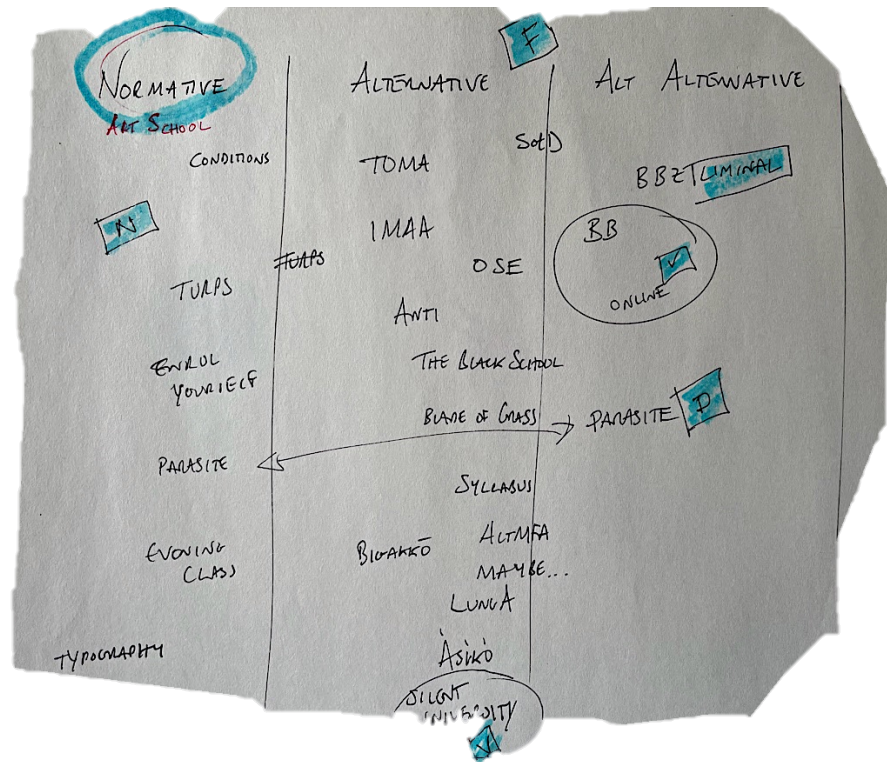 NORMATIVE
ART SCHOOL
CONDITIONS
N
TURPS
ENROL
YOURSELF
PARASITE
EVENING
CLASS
TYPOGRAPHY
ALTERNATIVE
F
SotD
TOMA
IMAA
TURPS
OSE
ANTI
THE BLACK SCHOOL
BLADE OF GRASS
SYLLABUS
ALTMFA
BIGAKKŌ
MAYBE...
LUNGA
ÀSÌKÒ
SILENT
UNIVERSITY
ALT ALTERNATIVE
BBZ LIMINAL
BB
ONLINE
PARASITE D